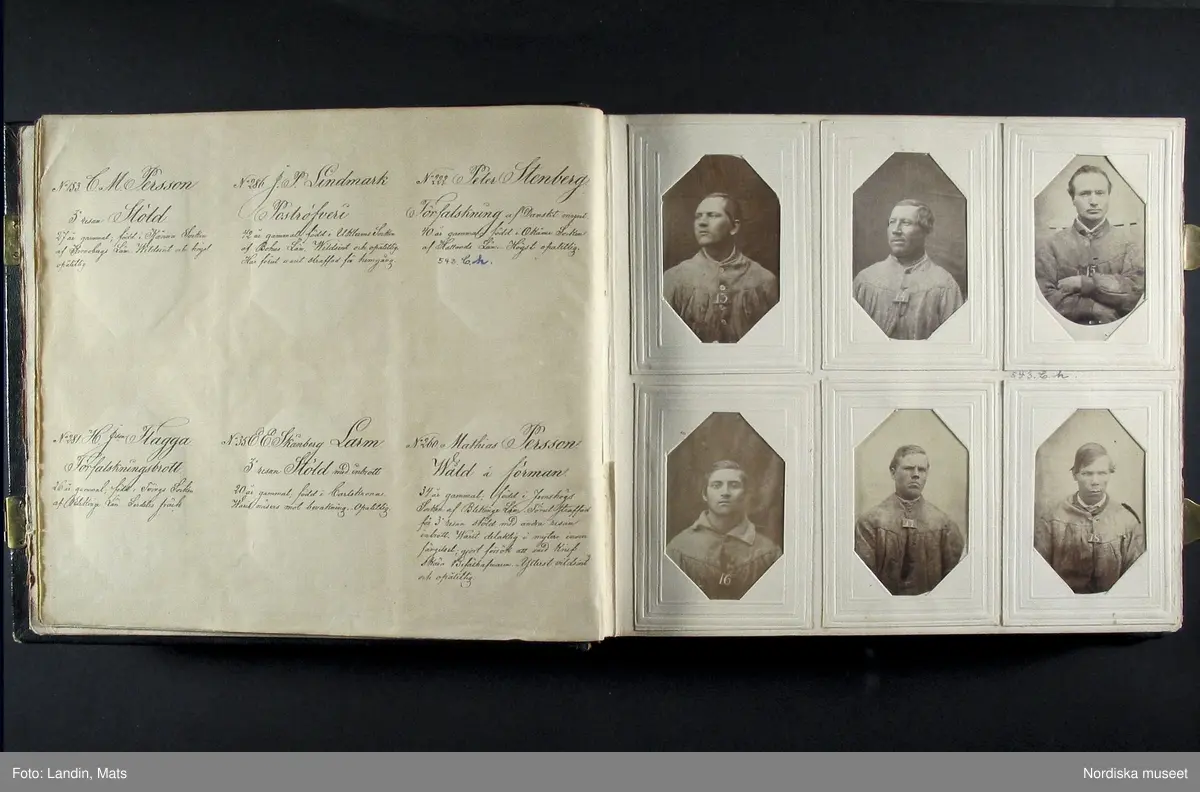 No 153 C. M. Persson
3e resan Stöld
27 år gammal, född i
af Kronobergs Län. Wildsint och högst
opålitlig
No 286 J. P. Lindmark
Poströfveri
42 år gammal, född i Socken
af Bohus Län. Wildsint och opålitlig.
Har förut varit straffad för hemgång.
No Peter Stenberg
Förfalskning af Danskt mynt
40 år gammal, född i Socken
af Hallands Län. Högst opålitlig.
543. C. h.
No 281 H. Jpson Hagga
Förfalskningsbrott
26 år gammal, född i Socken
af Län. fräck
No 35 C E Skånberg Larm
3e resan Stöld med inbrott
20 år gammal, född i Carlskrona.
Warit mot bevakning. Opålitlig.
No 260 Mathias Persson
Wåld å förman
34 år gammal, född i Jemshögs
Socken af Blekinge Län. Förut straffad
för 3e resan stöld med andra resan
inbrott. Warit delaktig i myteri inom
fängelset, gjort försök att med knif
skära Befälhafvaren. Ytterst vildsint
och opålitlig
15
15
543. C. h.
16
15
Foto: Landin, Mats
Nordiska museet